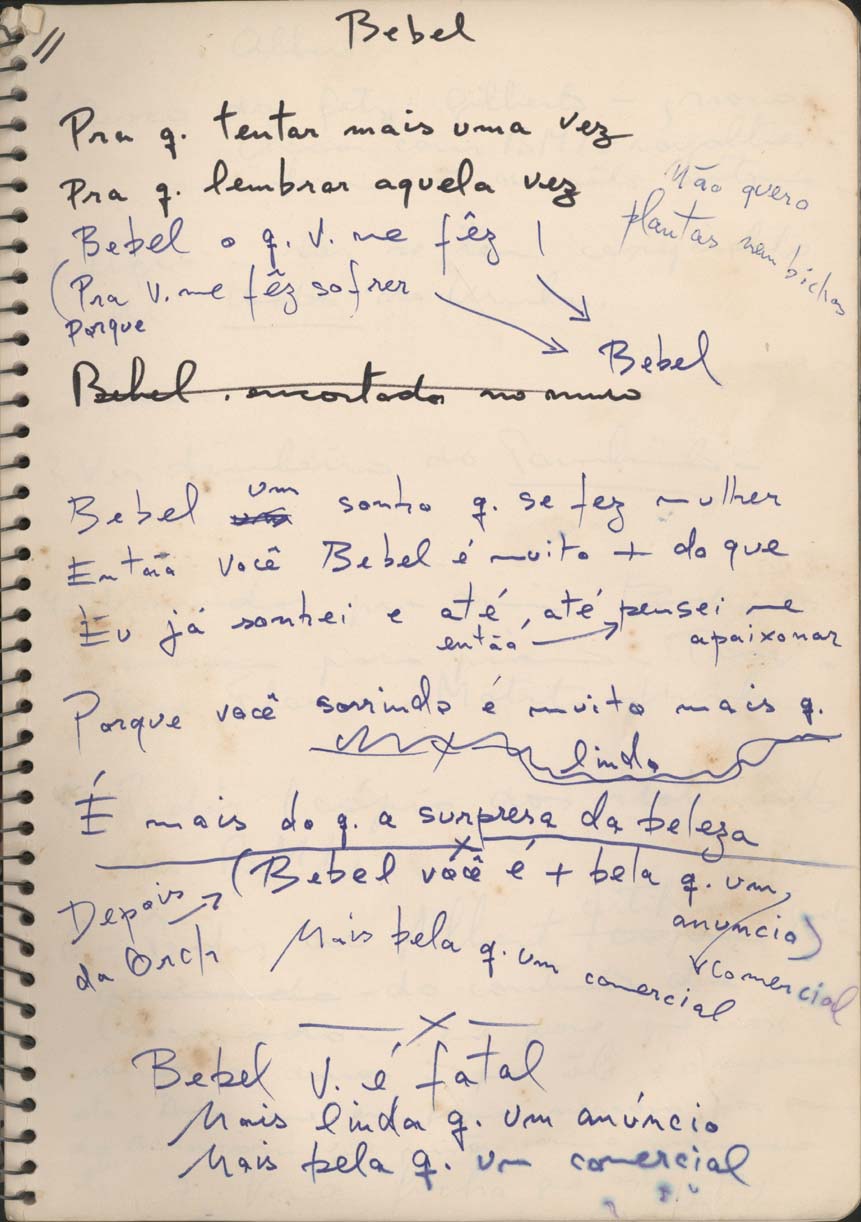 Bebel
11
Pra q. tentar mais uma vez
Pra q. lembrar aquela vez
Não quero
plantas nem bichos
Bebel o q. V. me fêz |
(Pra V. me fêz sofrer
Porque
Bebel
Bebel . encostada no muro
Bebel um sonho q. se fez mulher
Então você Bebel é muito + do que
Eu já sonhei e até, até pensei me
então
apaixonar
Porque você sorrindo é muito mais q.
linda
É mais do q. a surpresa da beleza
x
(Bebel você é + bela q. um,
anúncio)
Depois
da Orch
Comercial
Mais bela q. um comercial
x
Bebel V. é fatal
Mais linda q. um anúncio
Mais bela q. um comercial